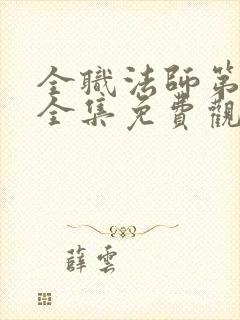 全職法師第
全集免費觀
薛雲